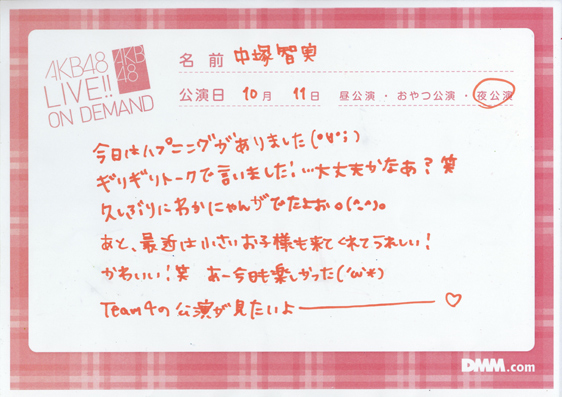 AKB48
LIVE!!
ON DEMAND
AKB
48
名前 中塚智実
公演日 10月 11日 昼公演・おやつ公演・夜公演
今日はハプニングがありました(°∀°;)
ギリギリトークで言いました!…大丈夫かなあ?笑
久しぶりにわかにゃんがでたよぉ。(^_^)。
あと、最近は小さいお子様も来てくれてうれしい!
かわいい!笑 あー今日も楽しかった(´ω`*)
Team4の公演が見たいよ――――♡
DMM.com